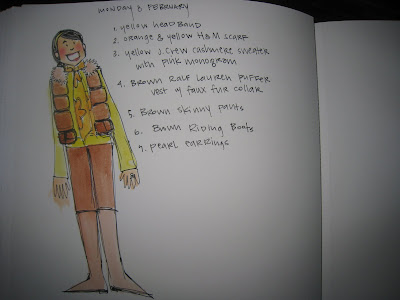 MONDAY 8 FEBRUARY
1. yellow HEADBAND
2. orange & yellow H&M SCARF
3. yellow J.Crew cashmere sweater
with pink monogram
4. Brown Ralf Lauren Puffer
vest w/ faux fur collar
5. Brown skinny pants
6. Brown Riding Boots
7. pearl earrings